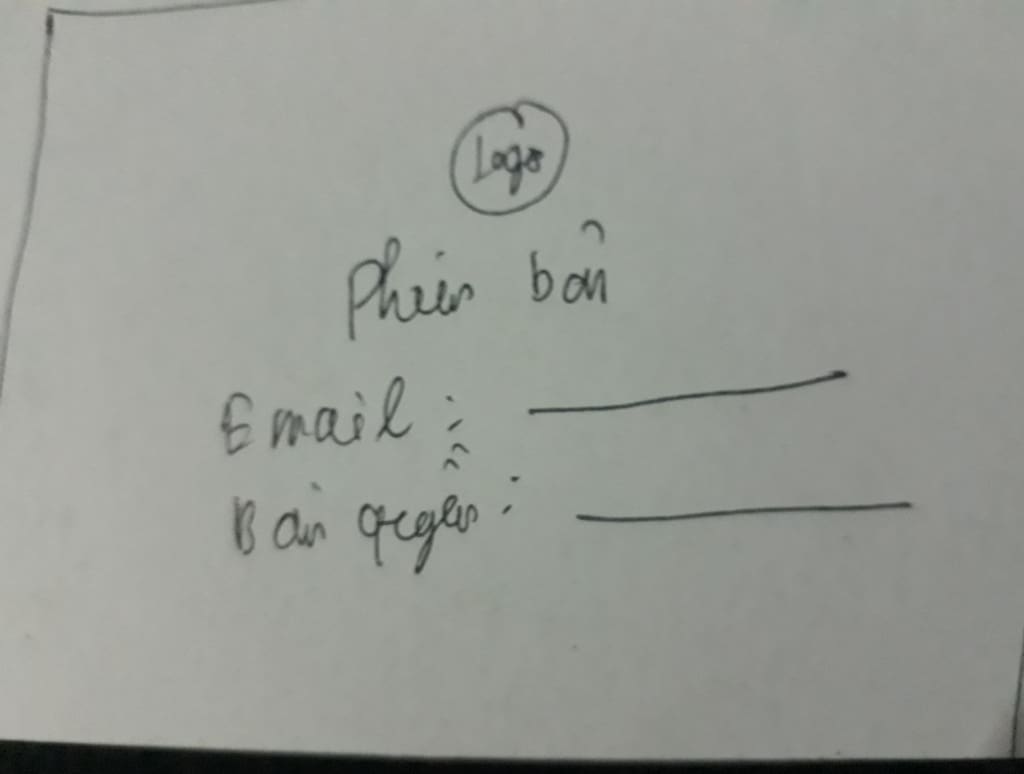 Logo
Phiên bản
Email :
Bản quyền :